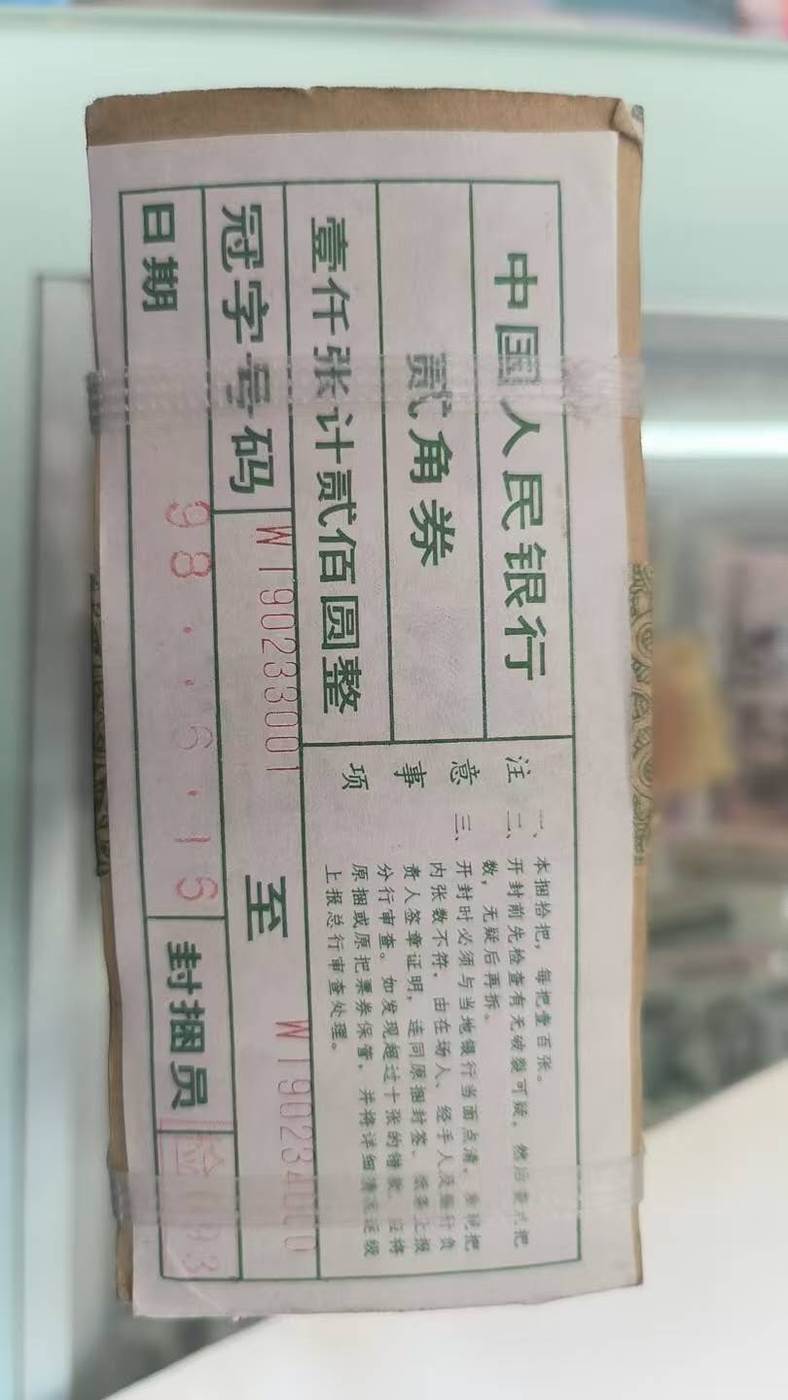 中国人民银行
贰角券
壹仟张计贰佰圆整
冠字号码 WI90233001 至 WI90234000
日期 98..6.15 封捆员 检 093
注意事项
一、本捆拾把，每把壹百张。
二、开封前先检查有无破裂可疑，然后查点把
数，无疑后再拆。
三、开封时必须与当地银行当面点清，发现把
内张数不符，由在场人、经手人及整针负
责人签章证明，连同原捆封签、纸条上报
分行审查。如发现超过十张的错款，应将
原捆或原把票券保管，并将详细情况逐级
上报总行审查处理。